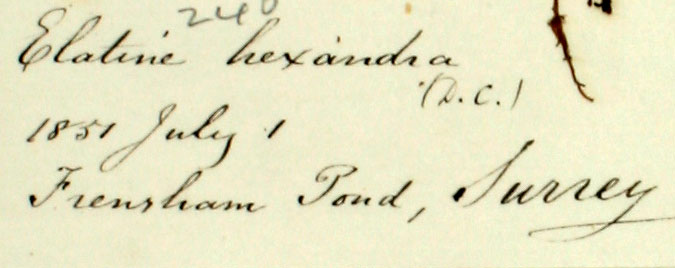 240
Elatine hexandra
(D.C.)
1851 July 1
Frensham Pond, Surrey